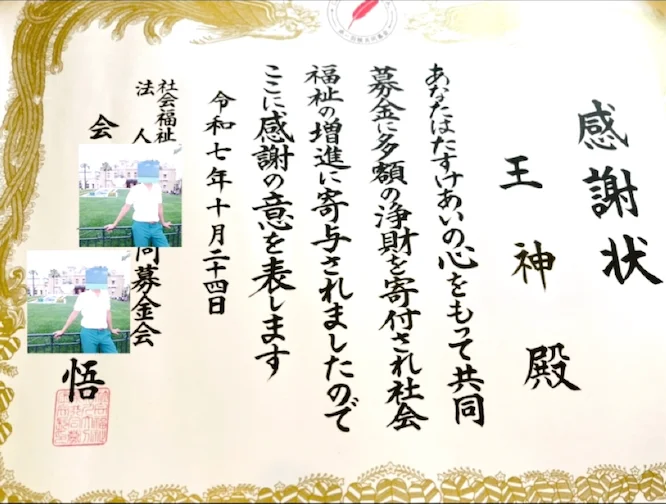 感謝状
王神殿
あなたはたすけあいの心をもって共同
募金に多額の浄財を寄付され社会
福祉の増進に寄与されましたので
ここに感謝の意を表します
令和七年十月二十四日
社会福祉
法人
同募金会
会
悟